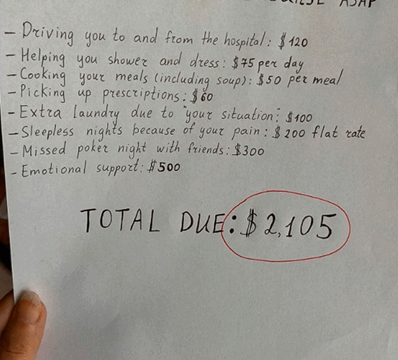 ASAP
- Driving you to and from the hospital: $120
- Helping you shower and dress: $75 per day
- Cooking your meals (including soup): $50 per meal
- Picking up prescriptions: $60
- Extra laundry due to your situation: $100
- Sleepless nights because of your pain: $200 flat rate
- Missed poker night with friends: $300
- Emotional support: $500
TOTAL DUE: $2,105